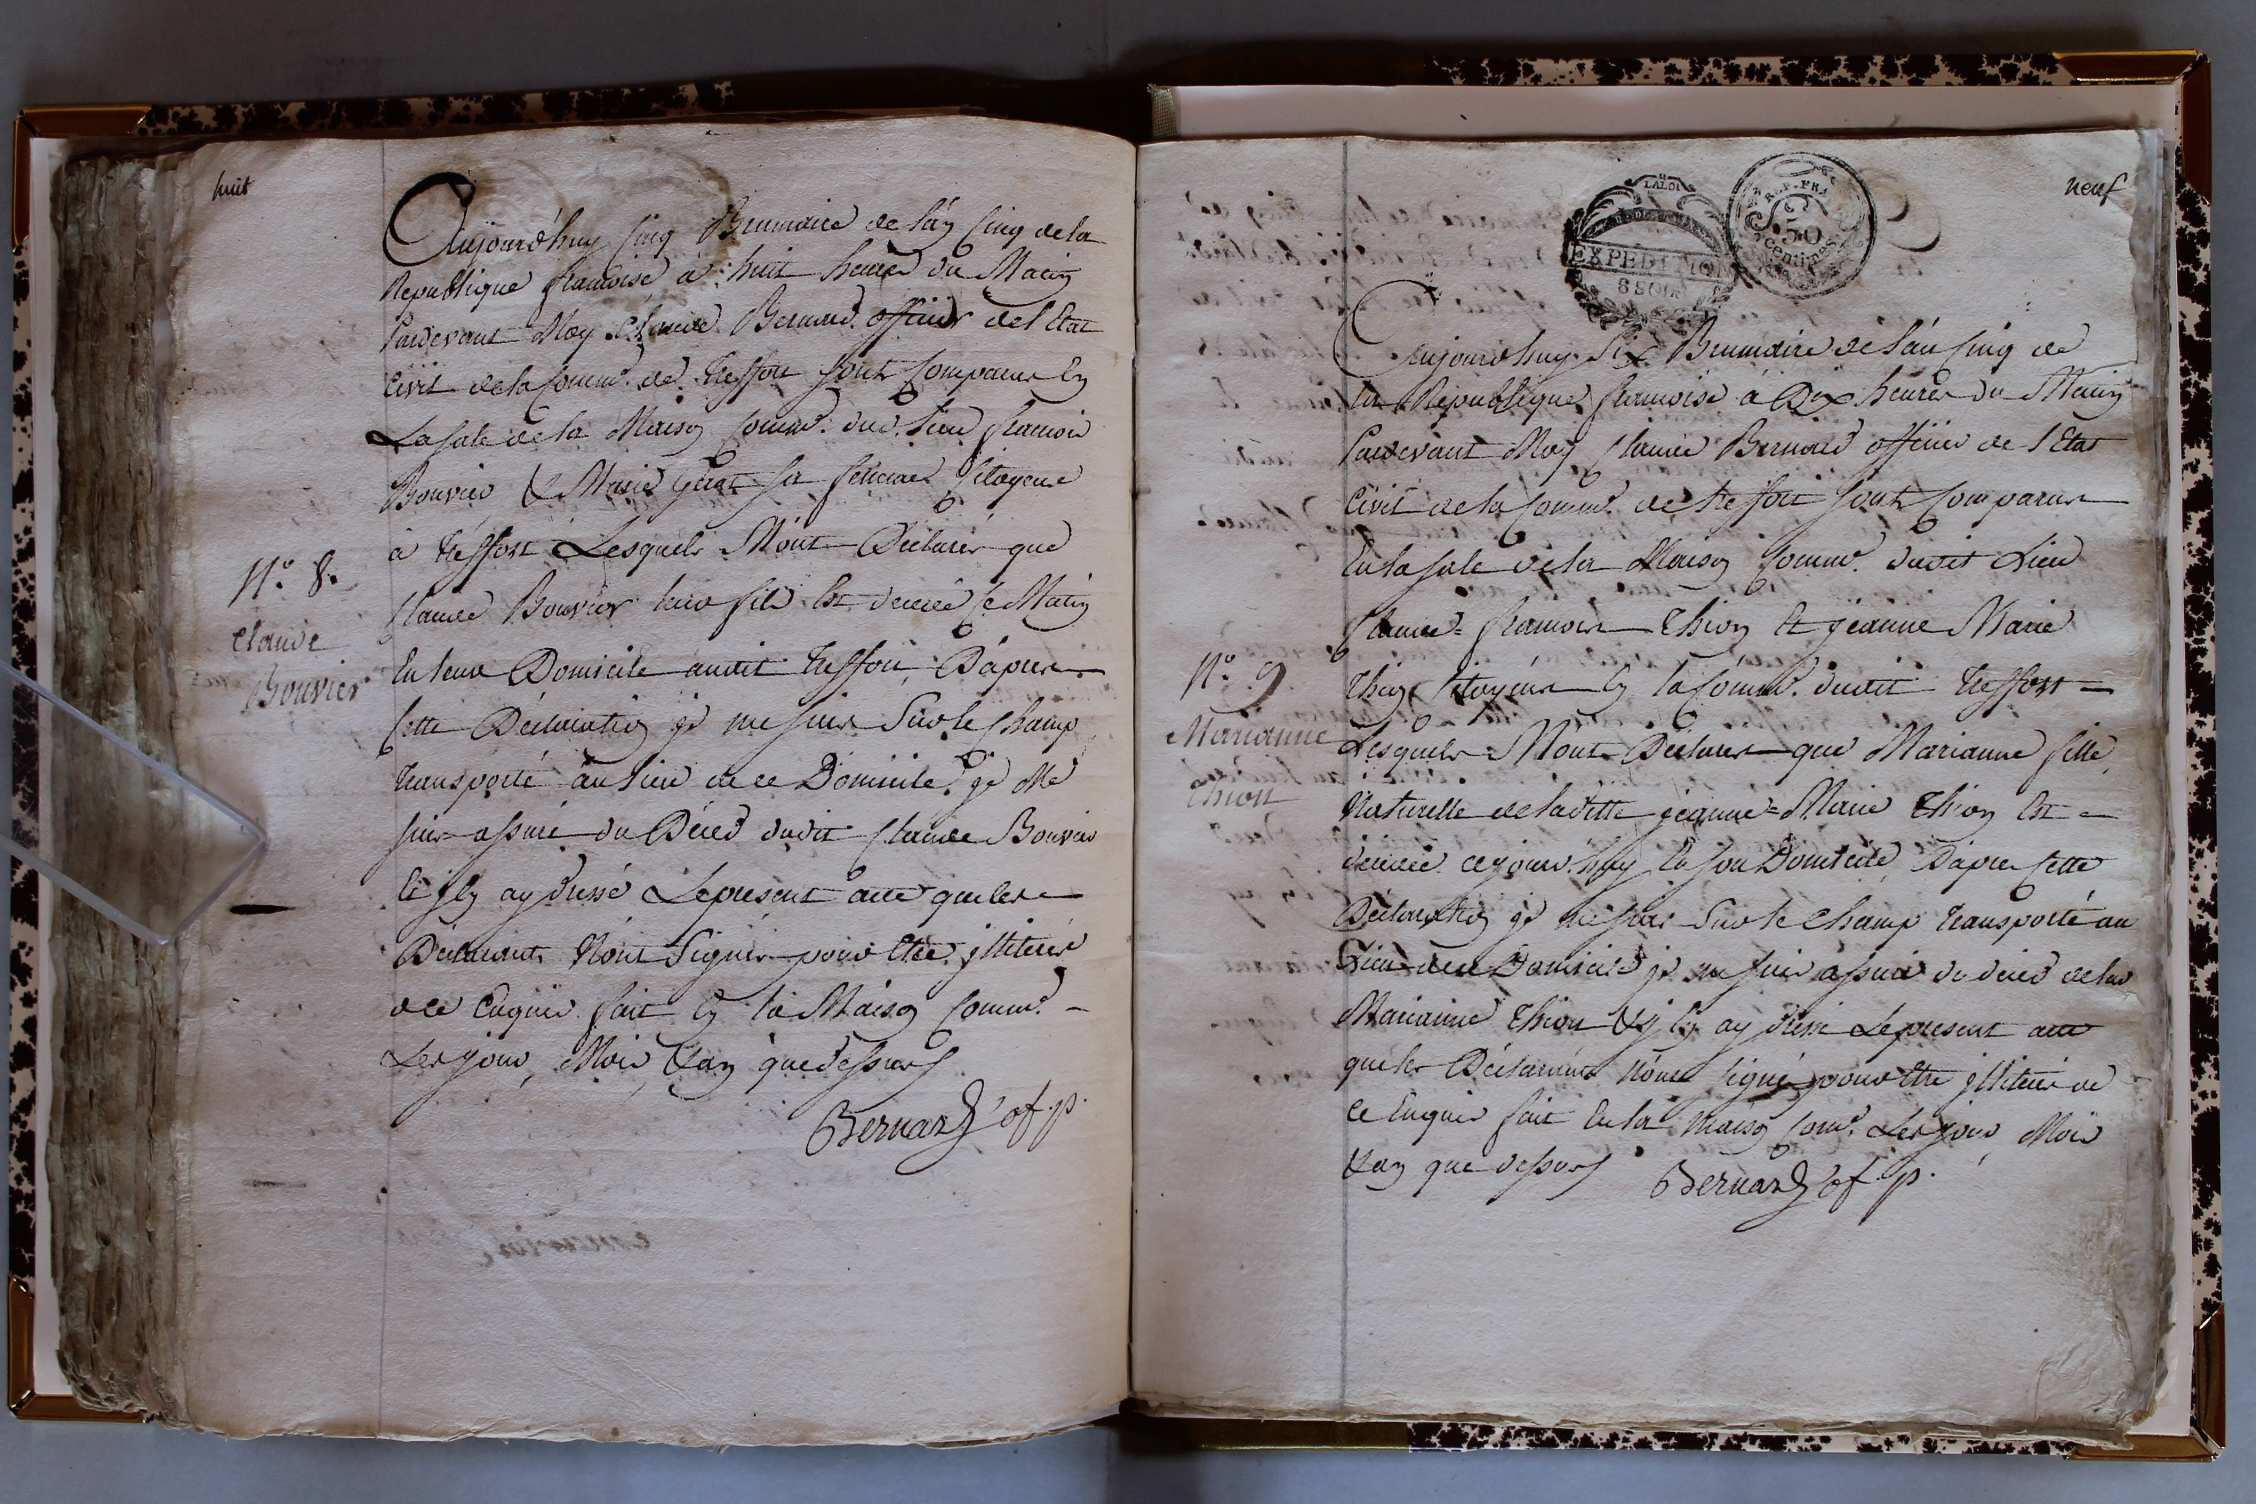 huit
Aujourd'huy Cinq Brumaire de l'an Cinq de la
Republique francoise à huit heures du Matin
Pardevant Moy Claude Bernard officier de l'Etat
Civil de la Comm.e de Treffort sont Comparus En
La sale de la Maison Comm.e dud. lieu francois
Bouvier & Marie sa femme Citoyens
à Treffort Lesquels M'ont Déclarés que
Claude Bouvier leur fils Est decedé ce Matin
En leur Domicile audit Treffort, D'apres
Cette Déclaration je me suis Sur le Champ
transporté au Lieu de ce Domicile, je Me
suis assuré du Déces dudit Claude Bouvier
Et j'En ay dressé Le present acte que les
Déclarants N'ont Signés pour Etre illiterés
de ce Enquis fait En la Maison Comm.e
Les jour, Mois, & an que dessus
Bernard of. p.
N.o 8.
Claude
Bouvier
neuf
LA LOI
EXPEDITION
REP. FRA
50
centimes
Aujourdhuy Six Brumaire de l'an Cinq de
la Republique francoise à Dix heures du Matin
Pardevant Moy Claude Bernard officier de l'Etat
Civil de la Comm.e de Treffort sont Comparus
En la sale de la Maison Comm.e dudit Lieu
Claude=francois Thion Et jeanne Marie
Thion Citoyens En la Comm.e dudit Treffort
Lesquels M'ont Déclarés que Marianne fille
Naturelle de laditte jeanne=Marie Thion Est
décédée cejourd'huy En son Domicile, D'apres Cette
Déclaration je me suis Sur le Champ transporté au
Lieu de ce Domicile je me suis assuré du deces de lad.
Marianne Thion & j'En ay dressé Le present acte
que les Déclarants N'ont signé pour Etre illiterés de
ce Enquis fait En la Maison Com.e Les jour, Mois
& an que dessus Bernard of. p.
N.o 9
Marianne
Thion